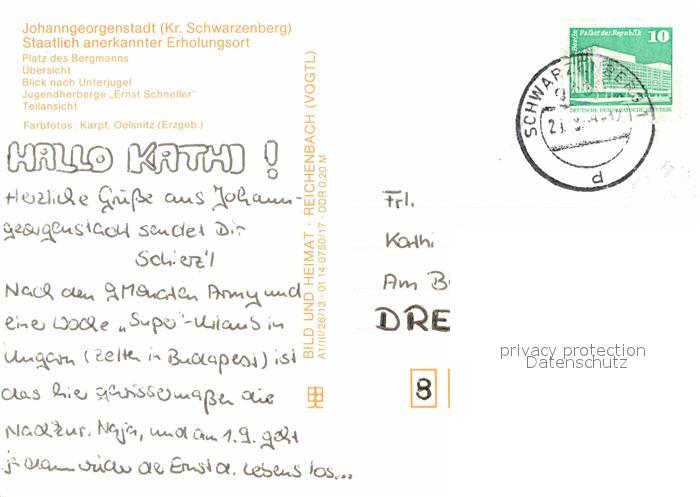 Johanngeorgenstadt (Kr. Schwarzenberg)
Staatlich anerkannter Erholungsort
Platz des Bergmanns
Übersicht
Blick nach Unterjugel
Jugendherberge „Ernst Schneller"
Teilansicht
Farbfotos: Karpf, Oelsnitz (Erzgeb.)
HALLO KATHI !
Herzliche Grüße aus Johann-
georgenstadt sendet Dir
Nach den 9 Monaten Army und
eine Woche „Super"-Urlaub in
Ungarn (Zelten in Budapest) ist
das hier gewissermaßen die
Naja, und am 1.9. geht
dann wieder de Ernst d. Lebens los...
BILD UND HEIMAT · REICHENBACH (VOGTL)
A1/III/26/13 01 14 0750/17 · DDR 0,20 M
Berlin Palast der Republik
10
DEUTSCHE DEMOKRATISCHE REPUBLIK
SCHWARZENBERG 1
d
Frl.
Kathi
Am B
DRE
8
privacy protection
Datenschutz